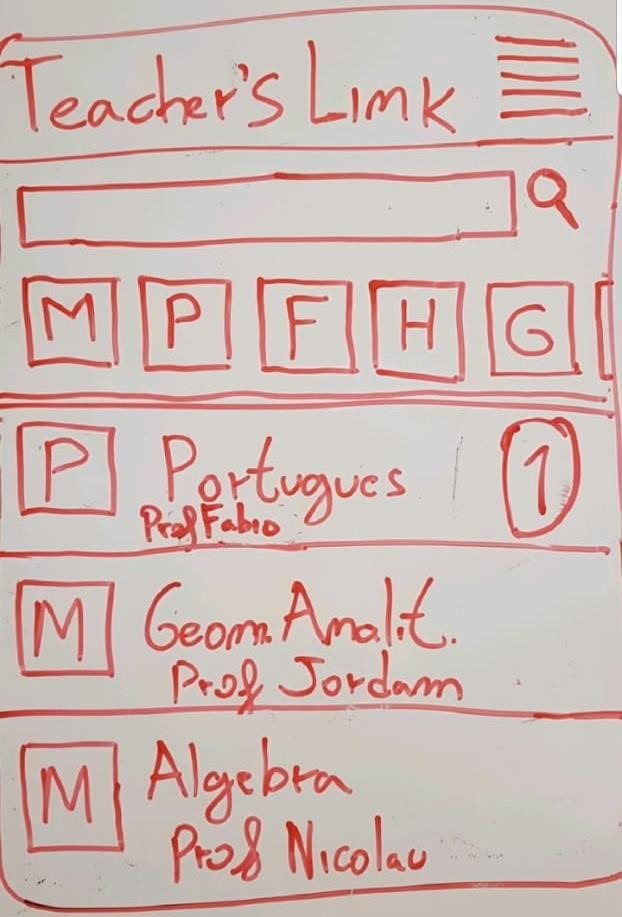 Teacher's Link
M P F H G
P Portugues 1
Prof Fabio
M Geom. Analit.
Prof Jordann
M Algebra
Prof Nicolau